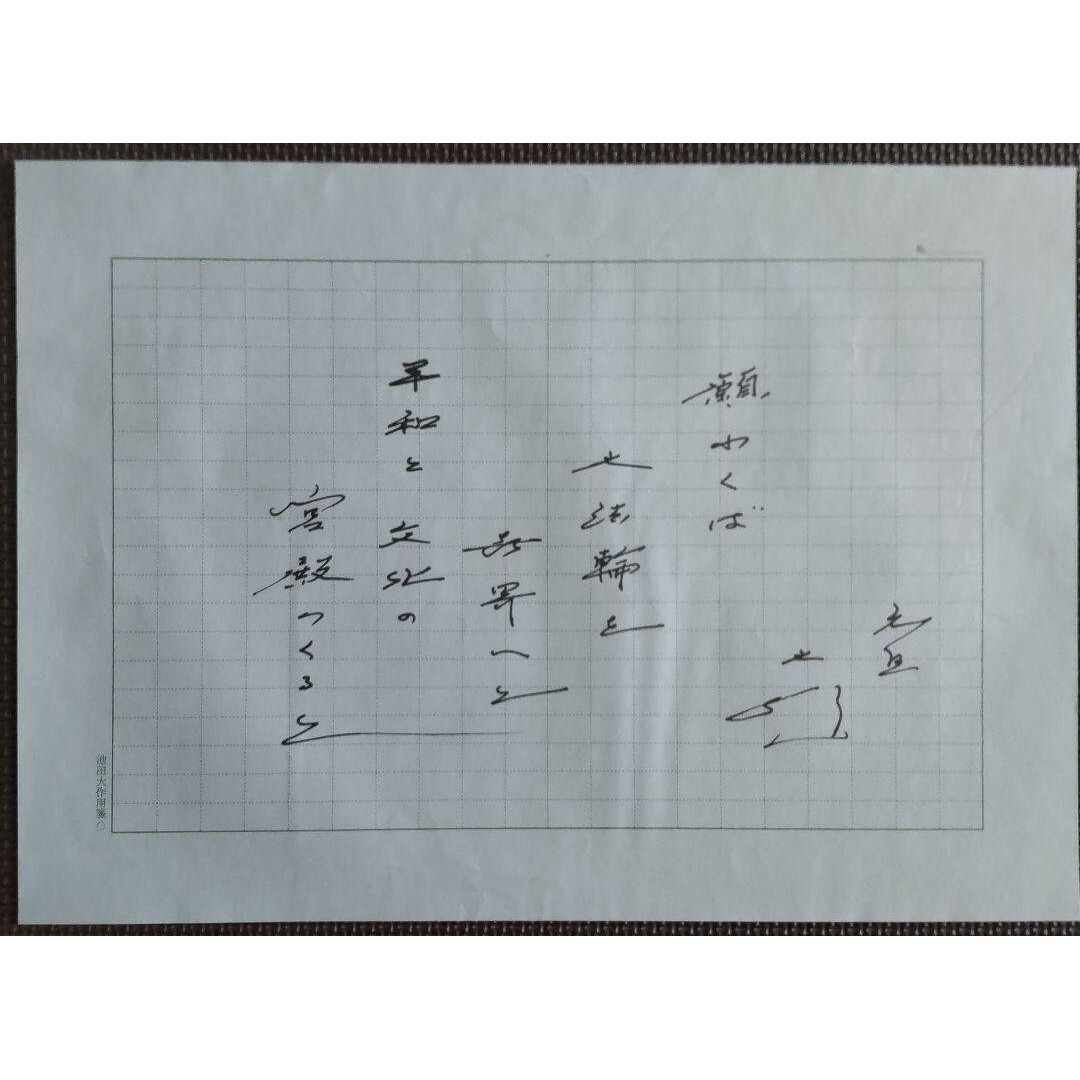 元旦
大作
願わくば
大法輪を
世界へと
平和と文化の
宮殿つくると
池田大作用箋